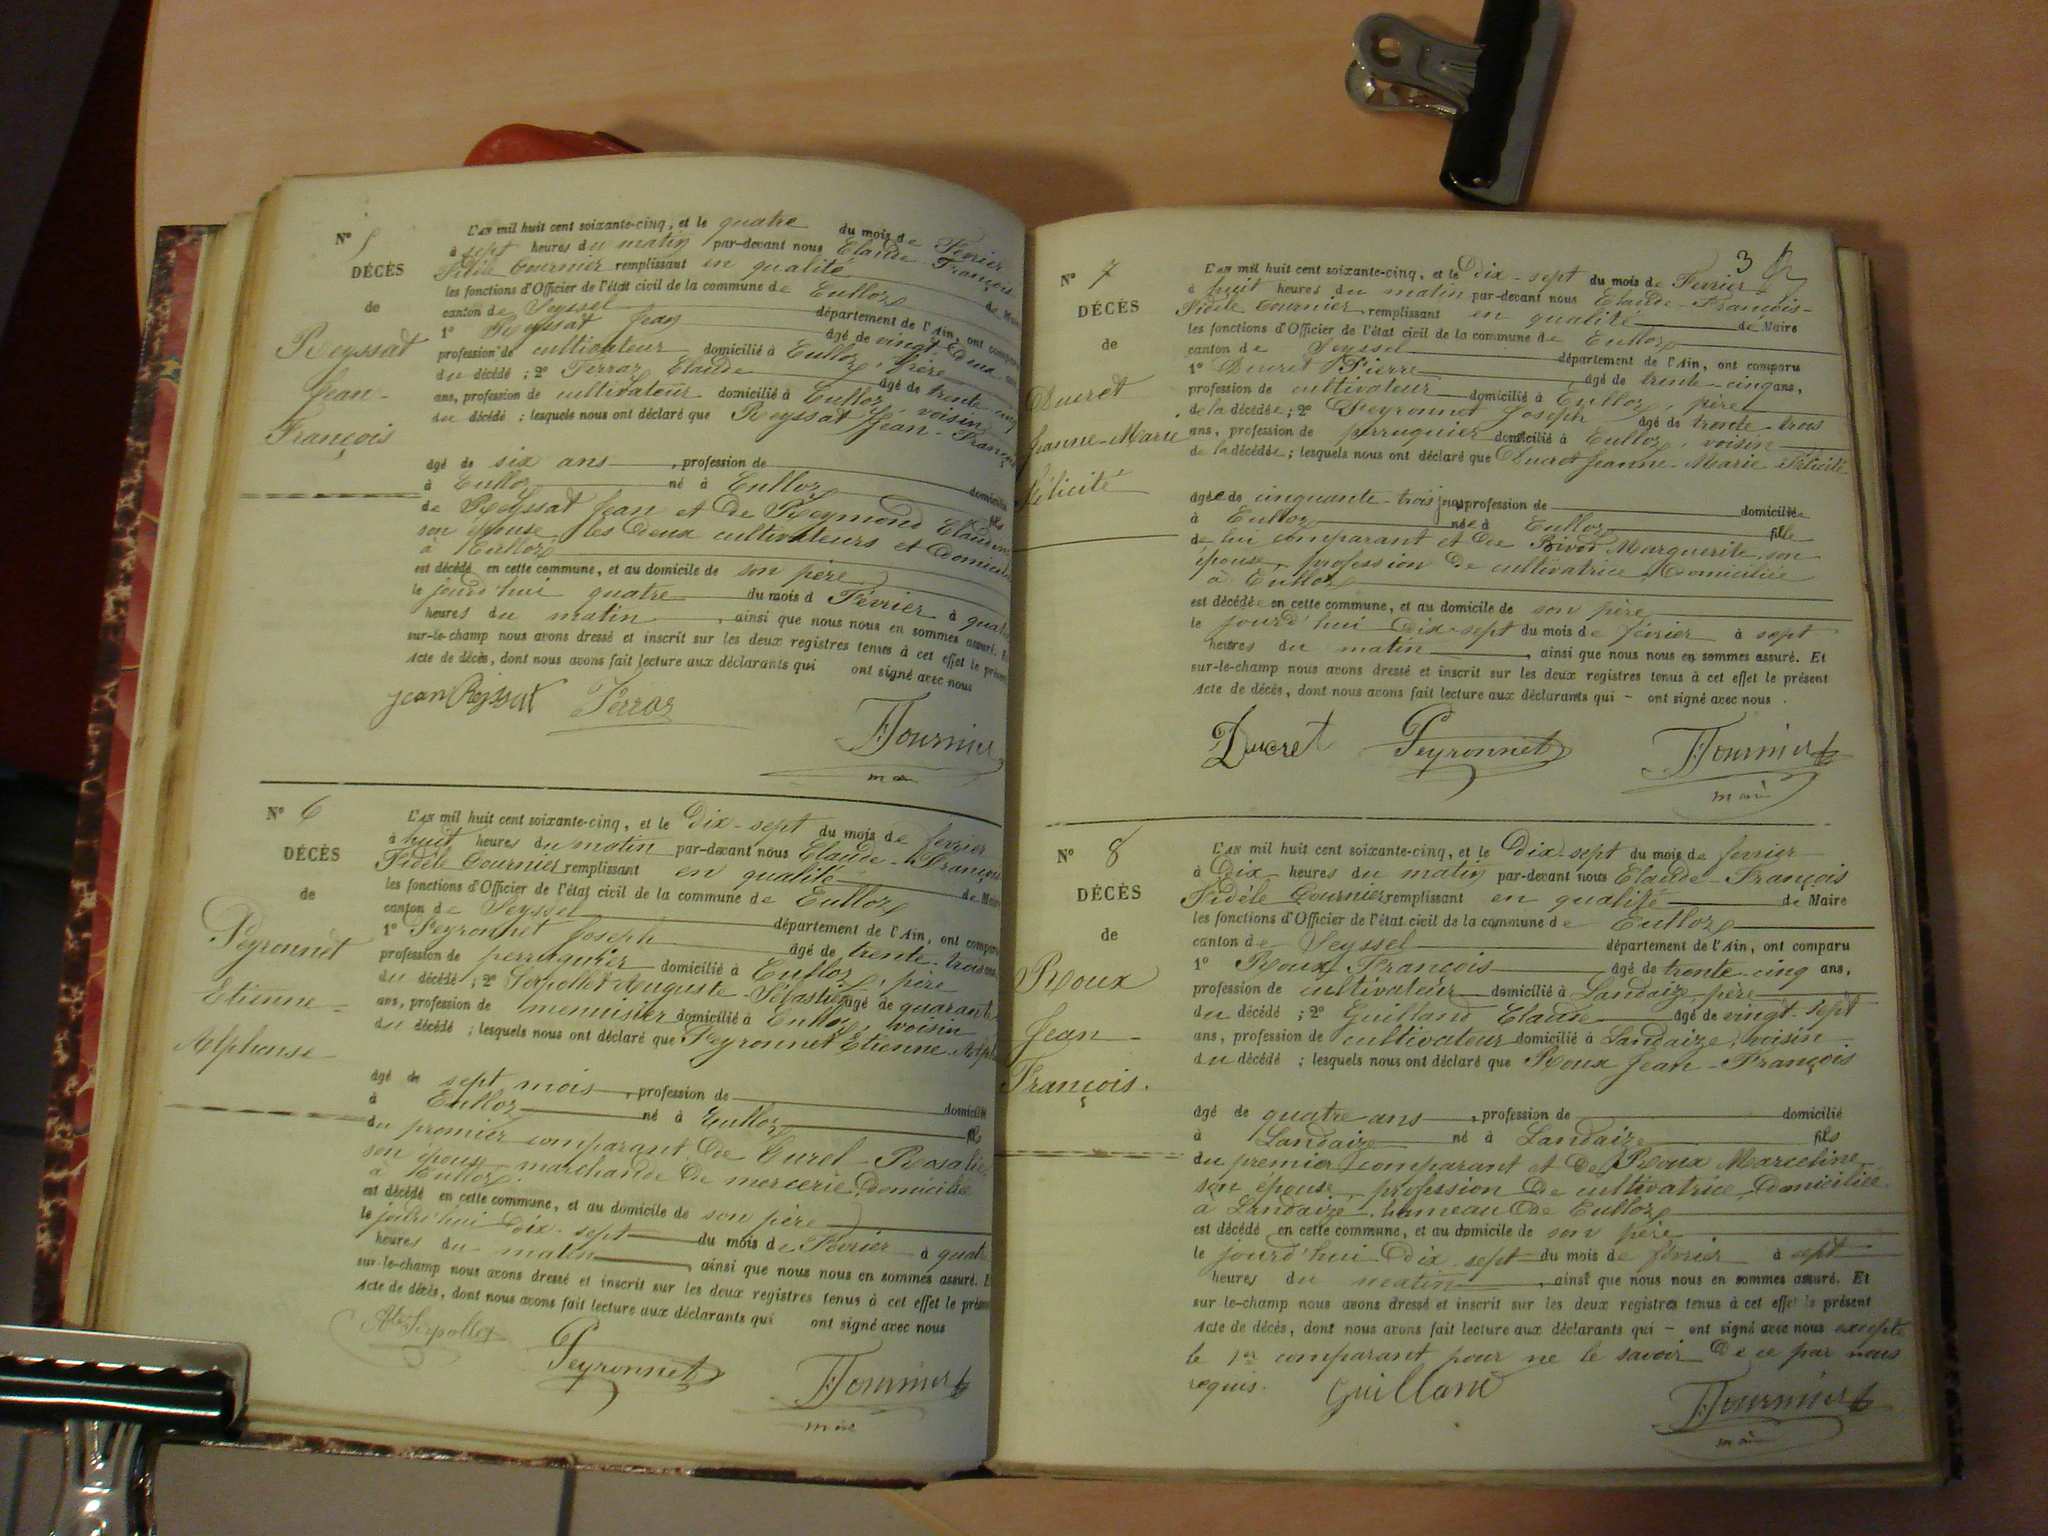 N° 5
DÉCÈS
de
Reyssat
Jean-
François
L'AN mil huit cent soixante-cinq, et le quatre du mois de Février
à sept heures du matin par-devant nous Claude-François
Fidèle Tournier remplissant en qualité de Maire
les fonctions d'Officier de l'état civil de la commune de Culloz
canton de Seyssel département de l'Ain, ont comparu
1° Reyssat Jean âgé de vingt-deux ans
profession de cultivateur domicilié à Culloz, frère
du décédé ; 2° Ferraz Claude âgé de trente cinq
ans, profession de cultivateur domicilié à Culloz, voisin
du décédé ; lesquels nous ont déclaré que Reyssat Jean-François
âgé de six ans, profession de domicilié
à Culloz né à Culloz fils
de Reyssat Jean et de Reymond Claudine
son épouse, les deux cultivateurs et domiciliés
à Culloz
est décédé en cette commune, et au domicile de son père
le jourd'hui quatre du mois d Février à quatre
heures du matin, ainsi que nous nous en sommes assuré. Et
sur-le-champ nous avons dressé et inscrit sur les deux registres tenus à cet effet le présent
Acte de décès, dont nous avons fait lecture aux déclarants qui ont signé avec nous
Jean Reyssat Ferraz
F Tournier
maire
N° 6
DÉCÈS
de
Peyronnet
Etienne-
Alphonse
L'AN mil huit cent soixante-cinq, et le Dix-sept du mois de février
à huit heures du matin par-devant nous Claude-François
Fidèle Tournier remplissant en qualité de Maire
les fonctions d'Officier de l'état civil de la commune de Culloz
canton de Seyssel département de l'Ain, ont comparu
1° Peyronnet Joseph âgé de trente-trois ans,
profession de perruquier domicilié à Culloz, père
du décédé ; 2° Serpollet Auguste-Sébastien âgé de quarante
ans, profession de menuisier domicilié à Culloz, voisin
du décédé ; lesquels nous ont déclaré que Peyronnet Etienne-Alph
âgé de sept mois, profession de domicilié
à Culloz né à Culloz fils
du premier comparant De Curel-Rosalie
son épouse marchande de mercerie, domiciliée
à Culloz
est décédé en cette commune, et au domicile de son père
le jourd'hui Dix-sept du mois de Février à quatre
heures du matin, ainsi que nous nous en sommes assuré. Et
sur-le-champ nous avons dressé et inscrit sur les deux registres tenus à cet effet le présent
Acte de décès, dont nous avons fait lecture aux déclarants qui ont signé avec nous
Serpollet Peyronnet F Tournier
maire
3
N° 7
DÉCÈS
de
Ducret
Jeanne-Marie
Félicité
L'AN mil huit cent soixante-cinq, et le Dix-sept du mois de Février
à huit heures du matin par-devant nous Claude-François-
Fidèle Tournier remplissant en qualité de Maire
les fonctions d'Officier de l'état civil de la commune de Culloz
canton de Seyssel département de l'Ain, ont comparu
1° Ducret Pierre âgé de trente-cinq ans,
profession de cultivateur domicilié à Culloz, père
de la décédée ; 2° Peyronnet Joseph âgé de trente-trois
ans, profession de perruquier domicilié à Culloz voisin
de la décédée ; lesquels nous ont déclaré que Ducret Jeanne-Marie-Félicité
âgée de cinquante-trois jours, profession de domiciliée
à Culloz née à Culloz fille
de lui comparant et de Bivod Marguerite, son
épouse, profession de cultivatrice, domiciliée
à Culloz
est décédée en cette commune, et au domicile de son père
le jourd'hui Dix-sept du mois de février à sept
heures du matin, ainsi que nous nous en sommes assuré. Et
sur-le-champ nous avons dressé et inscrit sur les deux registres tenus à cet effet le présent
Acte de décès, dont nous avons fait lecture aux déclarants qui – ont signé avec nous.
Ducret Peyronnet F Tournier
maire
N° 8
DÉCÈS
de
Roux
Jean-
François.
L'AN mil huit cent soixante-cinq, et le Dix-sept du mois de février
à Dix heures du matin par-devant nous Claude-François
Fidèle Tournier remplissant en qualité de Maire
les fonctions d'Officier de l'état civil de la commune de Culloz
canton de Seyssel département de l'Ain, ont comparu
1° Roux François âgé de trente-cinq ans,
profession de cultivateur domicilié à Landaize, père
du décédé ; 2° Guilland Claude âgé de vingt-sept
ans, profession de cultivateur domicilié à Landaize, voisin
du décédé ; lesquels nous ont déclaré que Roux Jean-François
âgé de quatre ans, profession de domicilié
à Landaize né à Landaize fils
du premier comparant et de Roux Marceline
son épouse, profession de cultivatrice, domiciliée
à Landaize, hameau de Culloz
est décédé en cette commune, et au domicile de son père
le jourd'hui Dix-sept du mois de février à sept
heures du matin, ainsi que nous nous en sommes assuré. Et
sur-le-champ nous avons dressé et inscrit sur les deux registres tenus à cet effet le présent
Acte de décès, dont nous avons fait lecture aux déclarants qui – ont signé avec nous excepté
le 1er comparant pour ne le savoir De ce par nous
requis. Guilland F Tournier
maire